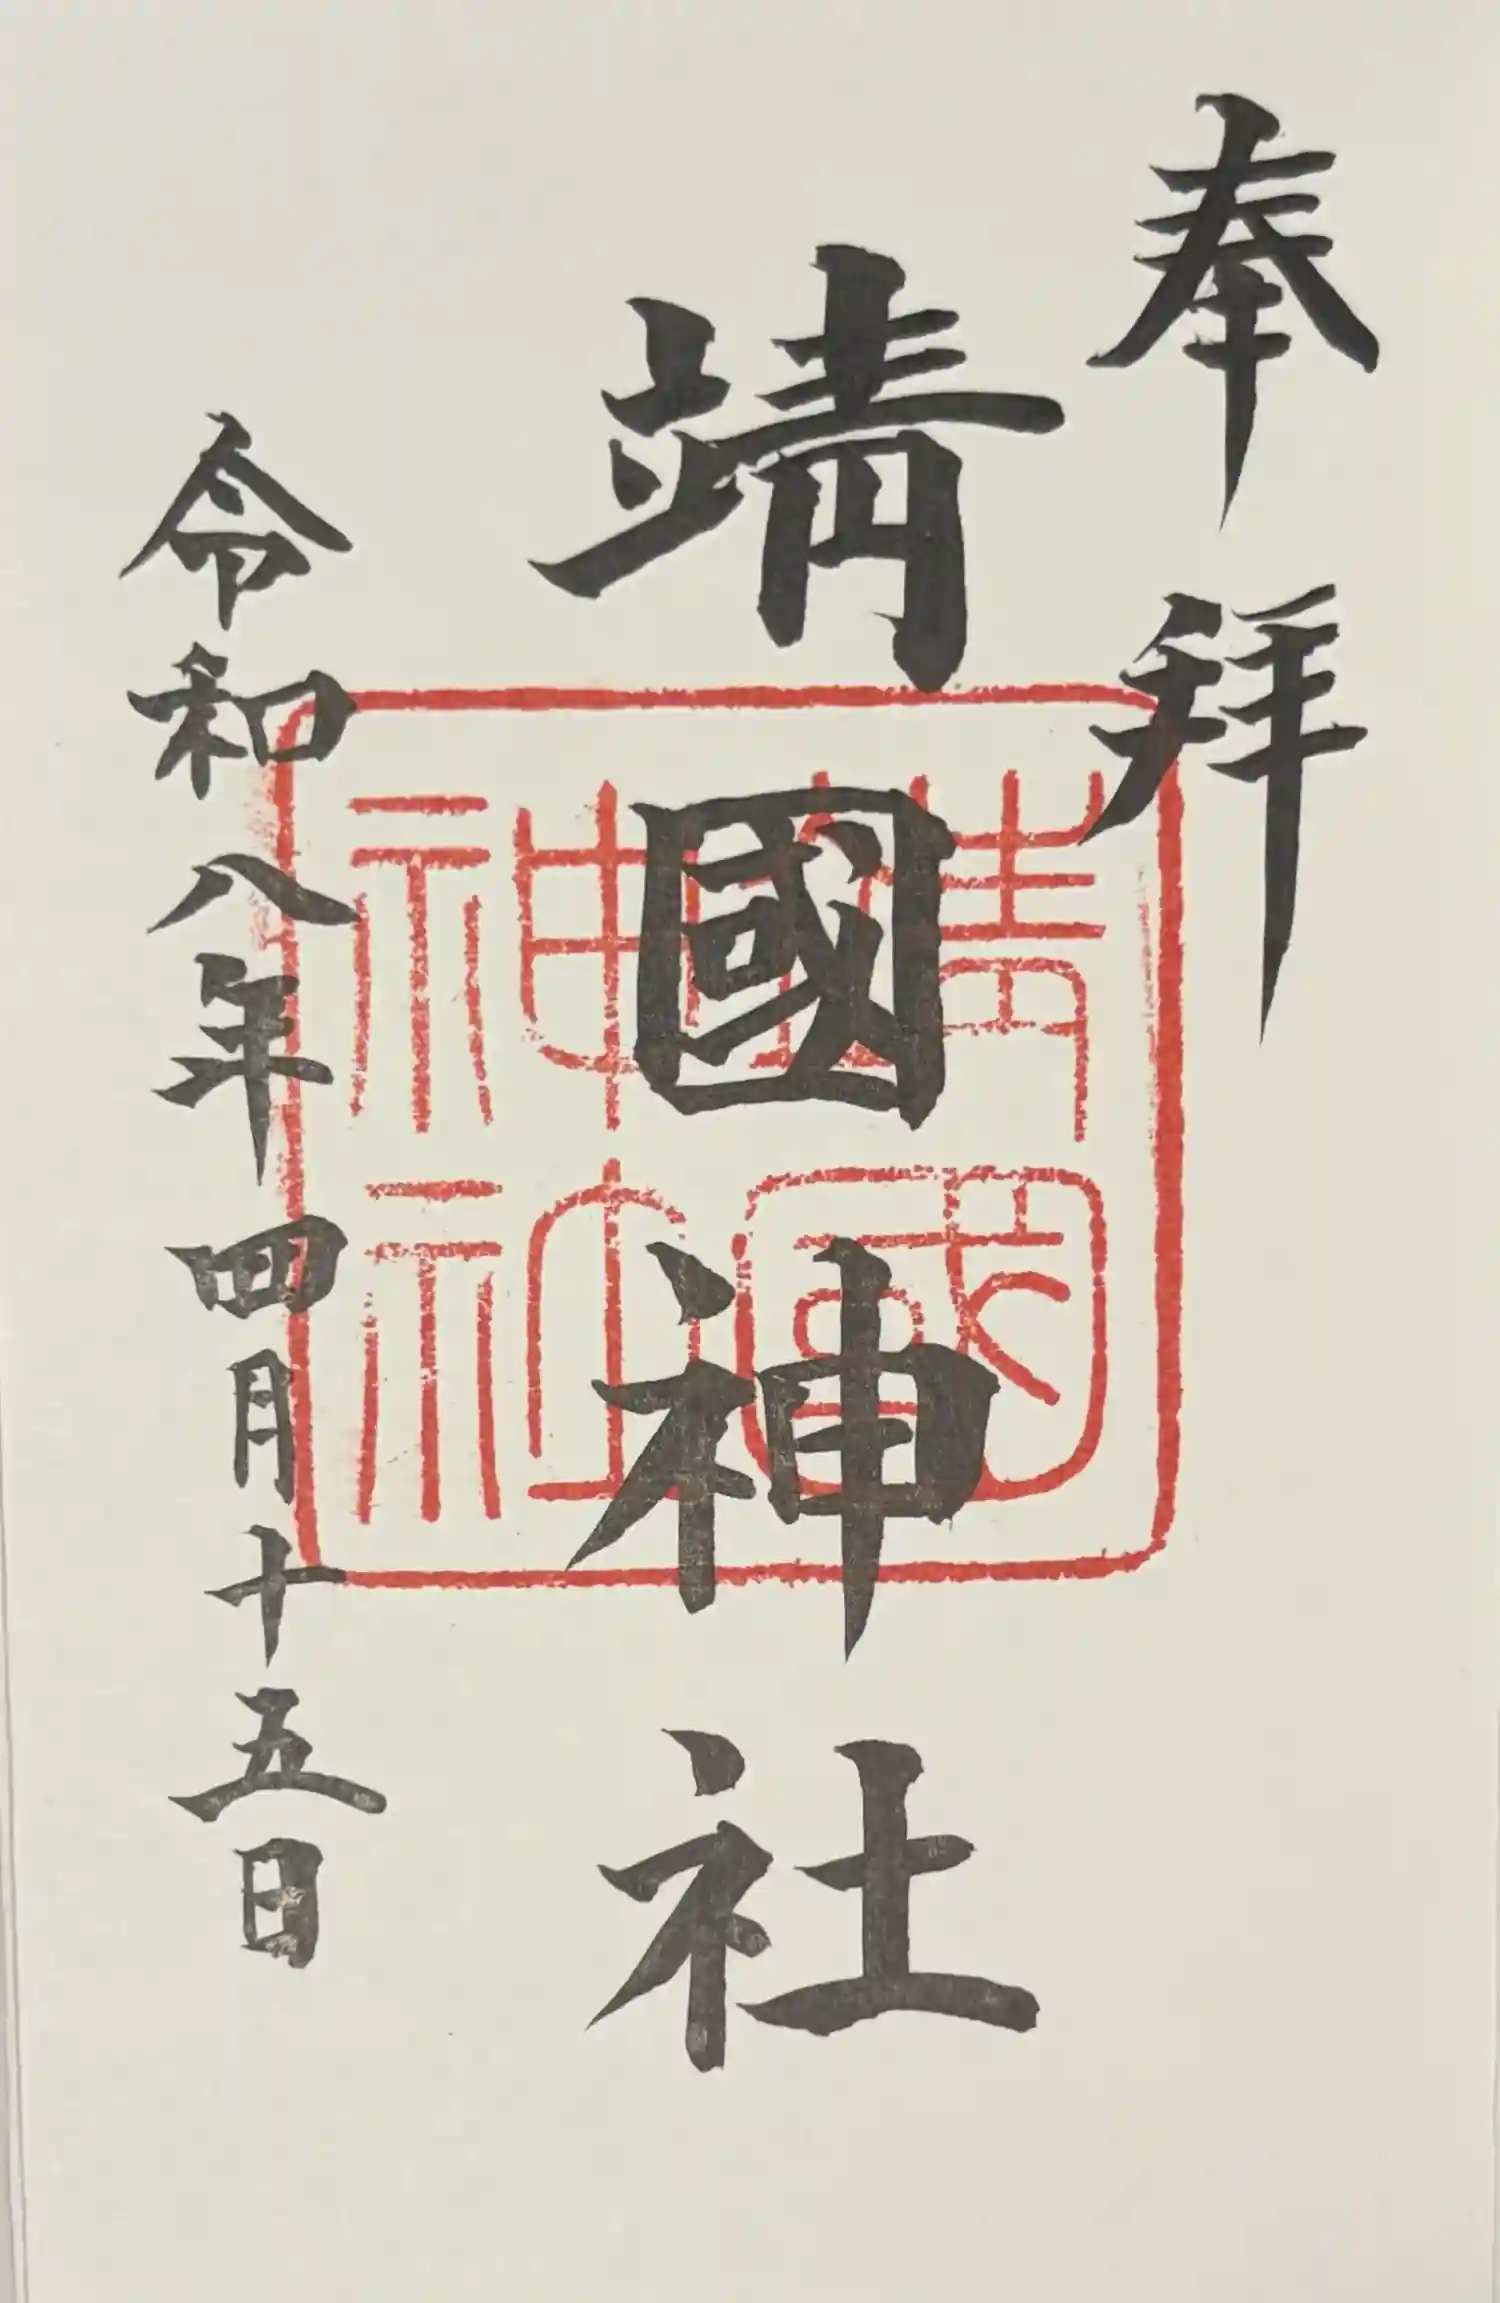 奉拜
靖國神社
令和八年四月十五日
靖國
神社